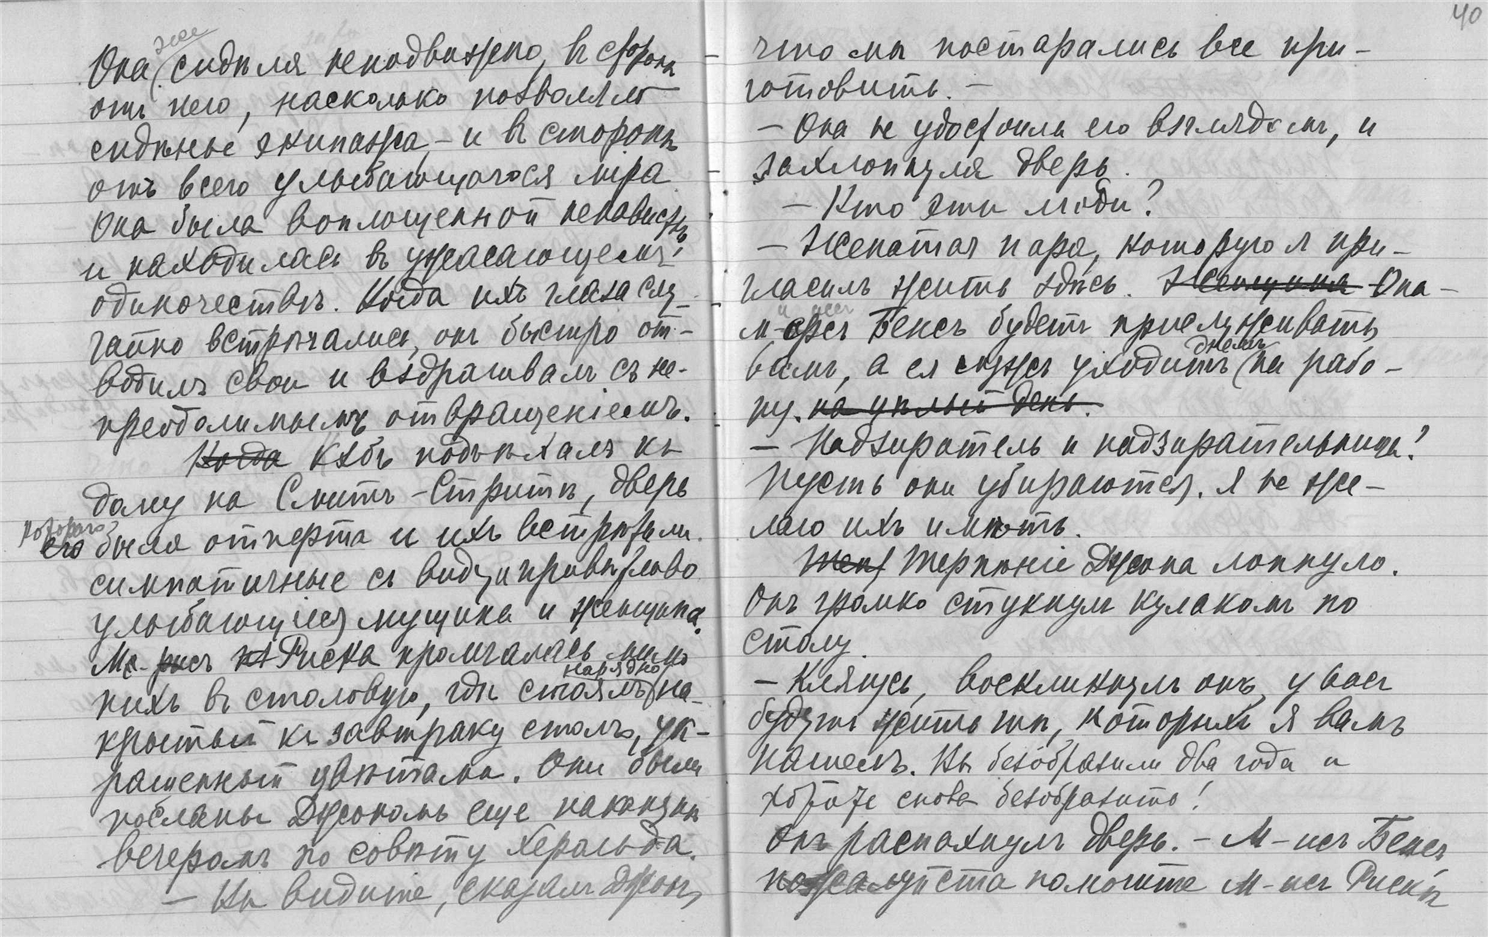 Она же сидѣла неподвижно, въ сторонѣ
отъ него, насколько позволяло
сидѣнье экипажа, – и въ сторонѣ
отъ всего улыбающагося міра.
Она была воплощенной ненавистью
и находилась въ ужасающемъ
одиночествѣ. Когда ихъ глаза слу-
чайно встрѣчались, онъ быстро от-
водилъ свои и вздрагивалъ съ не-
преодолимымъ отвращеніемъ.
Когда Кэбъ подъѣхалъ къ
дому на Смитъ-Стритѣ, дверь
которого его была отперта и ихъ встрѣтили
симпатичные съ виду и привѣтливо
улыбающіеся мущина и женщина.
М-рисъ Риска промчалась мимо
нихъ въ столовую, гдѣ стоялъ нарядно на-
крытый къ завтраку столъ, ук-
рашенный цвѣтами. Они были
посланы Джономъ еще наканунѣ
вечеромъ по совѣту Херальда.
– Вы видите, сказалъ Джонъ,
40
что мы постарались все при-
готовить. –
– Она не удостоила его взглядомъ, и
захлопнула дверь.
– Кто эти люди?
– Женатая пара, которую я при-
гласилъ жить здѣсь. Женщина Она –
м-рсъ Бенсъ будетъ прислуживать
вамъ, а ея мужъ уходитъ днемъ на рабо-
ту. на цѣлый день.
– Надзиратель и надзирательница?
Пусть они убираются. Я не же-
лаю ихъ имѣть.
Терпѣніе Джона лопнуло.
Онъ громко стукнулъ кулакомъ по
столу.
– Клянусь, воскликнулъ онъ, у васъ
будутъ жить тѣ, которыхъ я вамъ
нашелъ. Вы безобразили два года и
хотите снова безобразить!
Онъ распахнулъ дверь. – М-исъ Бенсъ
пожалуйста помогите М-исъ Рискѣ